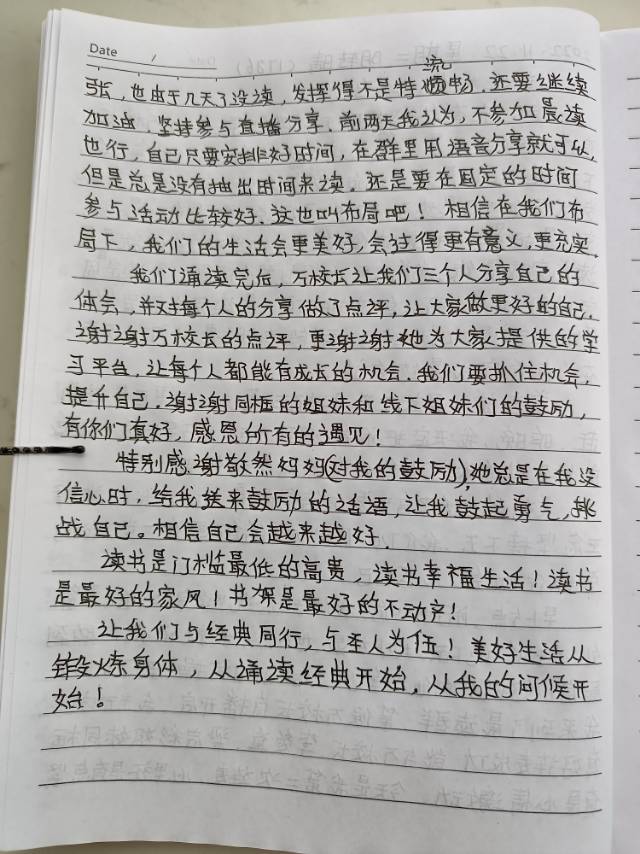 Date /
流
张，也由于几天了没读，发挥得不是特顺畅。还要继续
加油，坚持参与直播分享。前两天我认为，不参加晨读
也行，自己只要安排好时间，在群里用语音分享就可以，
但是总是没有抽出时间来读。还是要在固定的时间
参与活动比较好。这也叫布局吧！相信在我们布
局下，我们的生活会更美好，会过得更有意义，更充实。
我们诵读完后，万校长让我们三个人分享自己的
体会，并对每个人的分享做了点评，让大家做更好的自己。
谢谢万校长的点评，更谢谢她为大家提供的学
习平台，让每个人都能有成长的机会。我们要抓住机会，
提升自己。谢谢同框的姐妹和线下姐妹们的鼓励，
有你们真好，感恩所有的遇见！
特别感谢敬然妈妈(对我的鼓励)，她总是在我没
信心时，给我送来鼓励的话语，让我鼓起勇气，挑
战自己。相信自己会越来越好。
读书是门槛最低的高贵，读书幸福生活！读书
是最好的家风！书架是最好的不动产！
让我们与经典同行，与圣人为伍！美好生活从
锻炼身体，从诵读经典开始，从我的问候开
始！